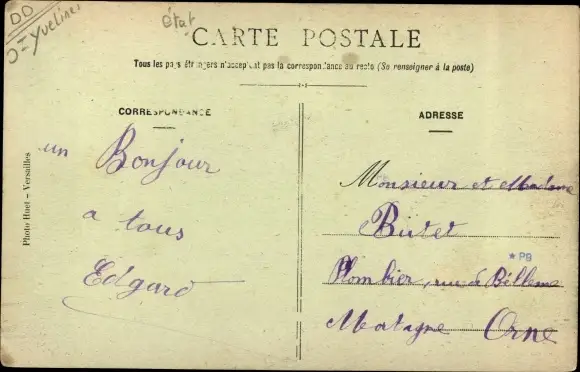 DD
O = Yvelines
état
CARTE POSTALE
Tous les pays étrangers n'acceptent pas la correspondance au recto (Se renseigner à la poste)
CORRESPONDANCE
un Bonjour
a tous
Edgard
Photo Huet – Versailles
ADRESSE
Monsieur et Madame
Butet
* PB
Plombier, rue de Bélleme
Mortagne Orne